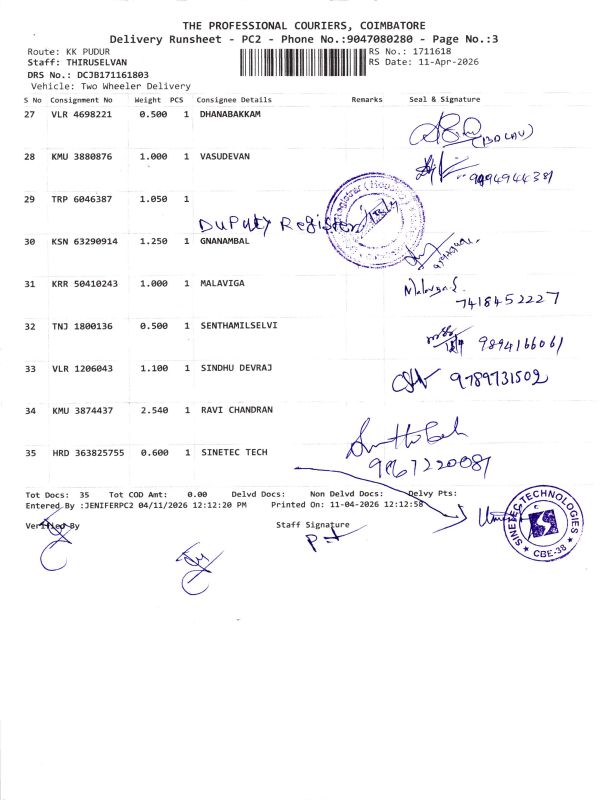 THE PROFESSIONAL COURIERS, COIMBATORE
Delivery Runsheet - PC2 - Phone No.:9047080280 - Page No.:3
Route: KK PUDUR RS No.: 1711618
Staff: THIRUSELVAN RS Date: 11-Apr-2026
DRS No.: DCJB171161803
Vehicle: Two Wheeler Delivery
S No Consignment No Weight PCS Consignee Details Remarks Seal & Signature
27 VLR 4698221 0.500 1 DHANABAKKAM
28 KMU 3880876 1.000 1 VASUDEVAN
29 TRP 6046387 1.050 1
DUPUty Register
30 KSN 63290914 1.250 1 GNANAMBAL
31 KRR 50410243 1.000 1 MALAVIGA
7418452227
32 TNJ 1800136 0.500 1 SENTHAMILSELVI
9894166061
33 VLR 1206043 1.100 1 SINDHU DEVRAJ
9789731502
34 KMU 3874437 2.540 1 RAVI CHANDRAN
35 HRD 363825755 0.600 1 SINETEC TECH
Tot Docs: 35 Tot COD Amt: 0.00 Delvd Docs: Non Delvd Docs: Delvy Pts:
Entered By :JENIFERPC2 04/11/2026 12:12:20 PM Printed On: 11-04-2026 12:12:58
Verified By Staff Signature
SINETEC TECHNOLOGIES
CBE-38